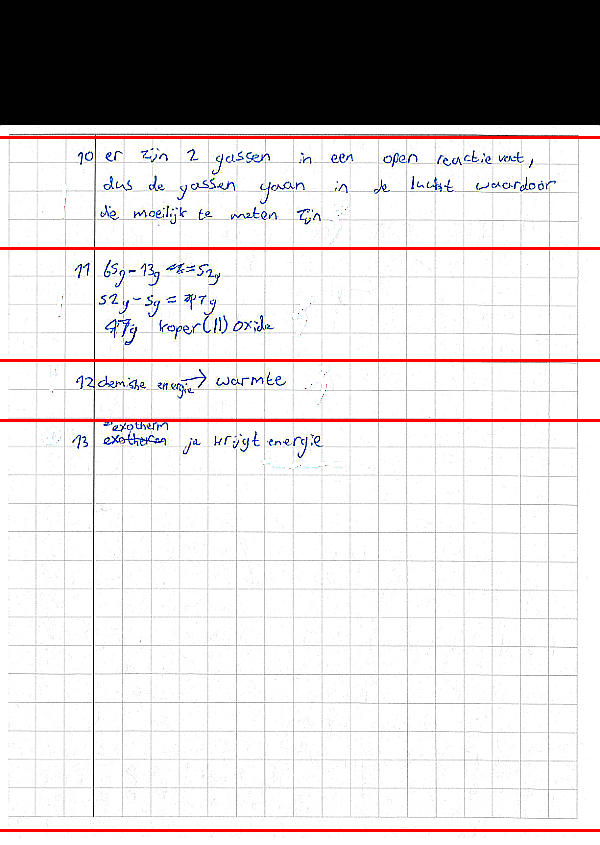 10 er zijn 2 gassen in een open reactievat,
dus de gassen gaan in de lucht waardoor
die moeilijk te meten zijn
11 65g - 13g = 52g
52g - 5g = 47g
47g koper(II) oxide
12 chemishe energie → warmte
exotherm
13 ja krijgt energie